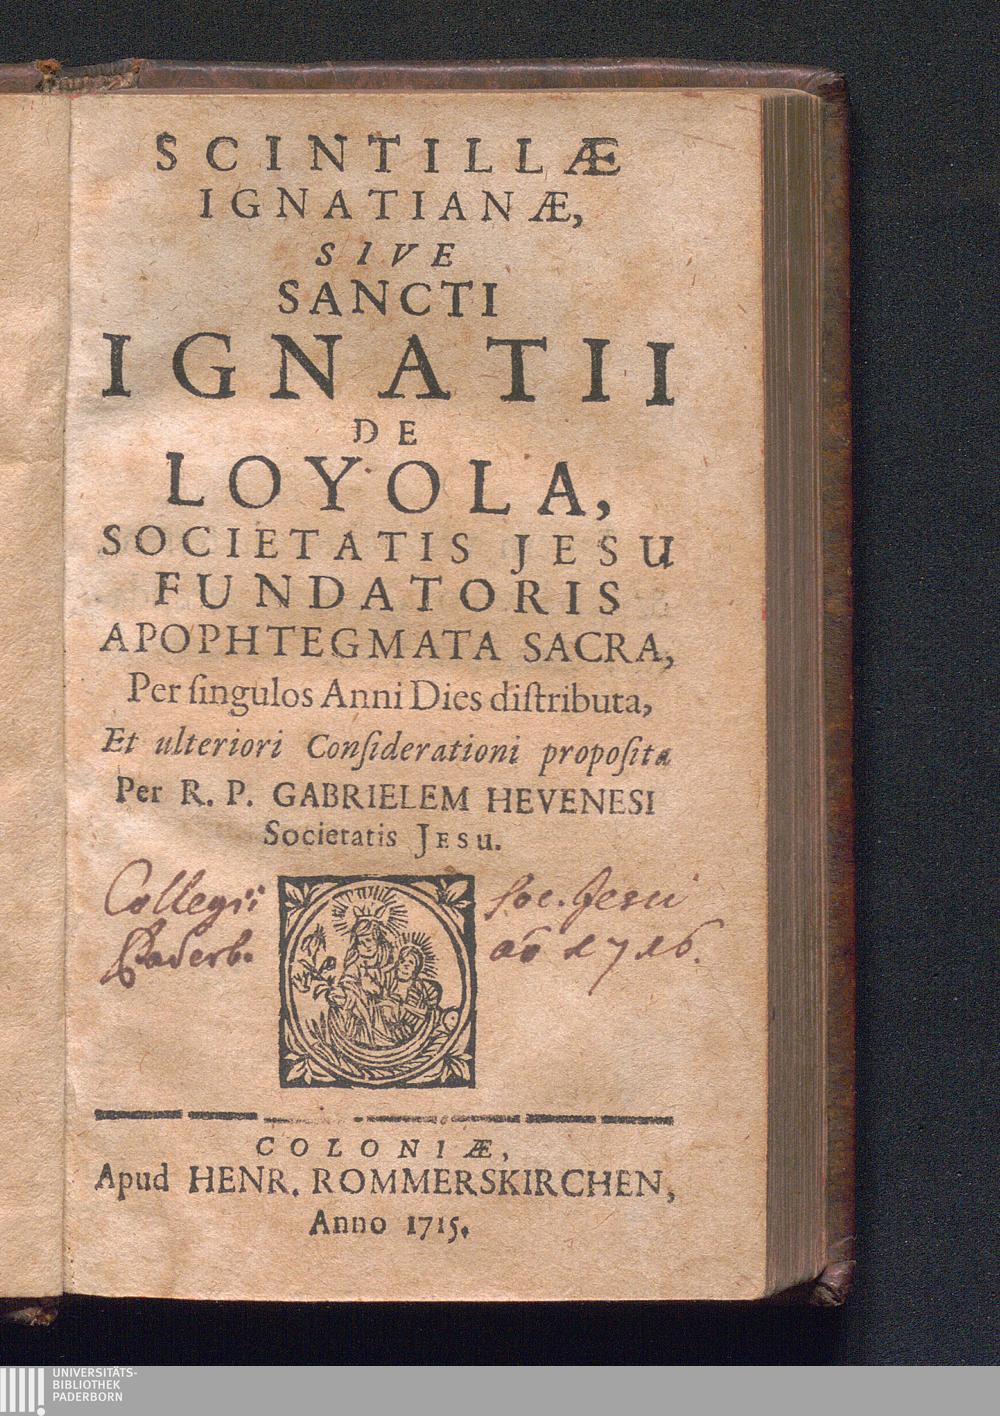 SCINTILLÆ
IGNATIANÆ,
SIVE
SANCTI
IGNATII
DE
LOYOLA,
SOCIETATIS JESU
FUNDATORIS
APOPHTEGMATA SACRA,
Per ſingulos Anni Dies diſtributa,
Et ulteriori Conſiderationi propoſita
Per R. P. GABRIELEM HEVENESI
Societatis JESU.
Collegii Soc. Jesu
Paderb. ao 1716.
COLONIÆ,
Apud HENR. ROMMERSKIRCHEN,
Anno 1715.
UNIVERSITÄTS-
BIBLIOTHEK
PADERBORN